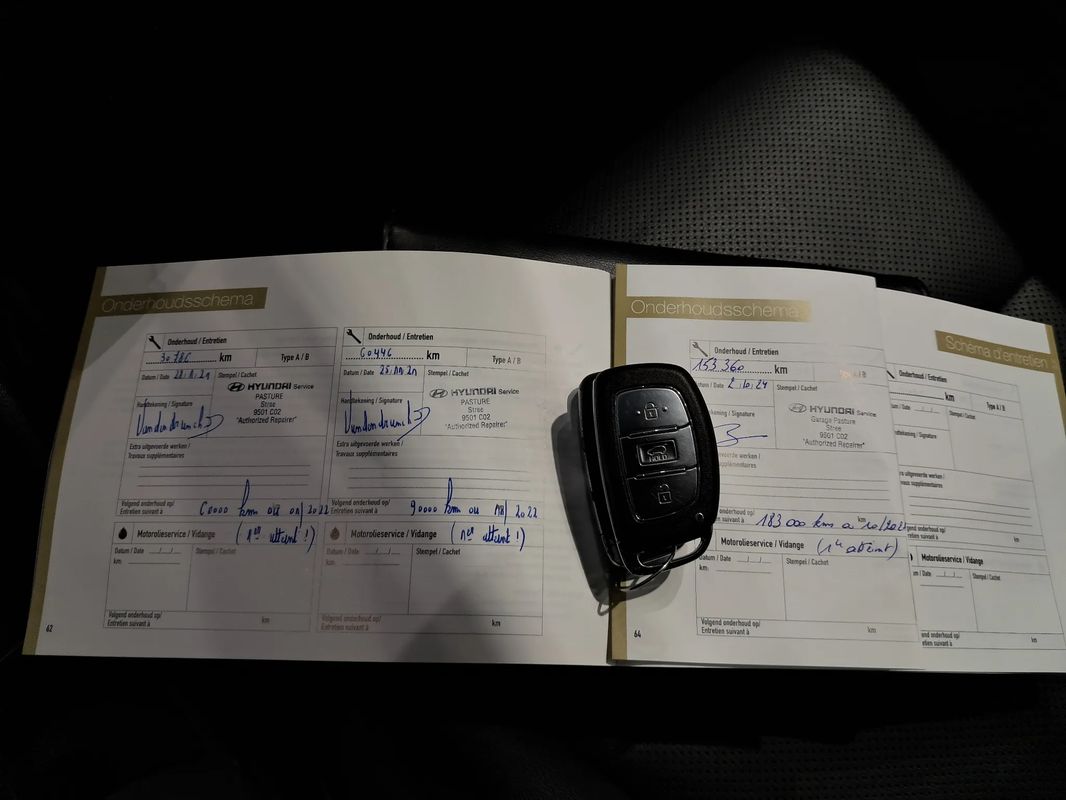 Onderhoudsschema
Onderhoud / Entretien
30.786 km Type A / B
Datum / Date Stempel / Cachet
HYUNDAI Service
PASTURE
Stree
9501 C02
"Authorized Repairer"
Handtekening / Signature
Extra uitgevoerde werken /
Travaux supplémentaires
Volgend onderhoud op/
Entretien suivant à 60000 km ou 01/2022
(1er atteint !)
Motorolieservice / Vidange
Datum / Date Stempel / Cachet
km:
Volgend onderhoud op/
Entretien suivant à km
62
Onderhoud / Entretien
60.446 km Type A / B
Datum / Date 25.11.21 Stempel / Cachet
HYUNDAI Service
PASTURE
Stree
9501 C02
"Authorized Repairer"
Handtekening / Signature
Extra uitgevoerde werken /
Travaux supplémentaires
Volgend onderhoud op/
Entretien suivant à 90000 km ou 11/2022
(1er atteint !)
Motorolieservice / Vidange
Datum / Date Stempel / Cachet
km:
Volgend onderhoud op/
Entretien suivant à km
Onderhoudsschema
Onderhoud / Entretien
153.360 km A / B
Datum / Date 2.10.24 Stempel / Cachet
HYUNDAI Service
Garage Pasture
Stree
9501 C02
"Authorized Repairer"
/ Signature
werken /
supplémentaires
onderhoud op/
suivant à 183 000 km
(1er atteint)
Motorolieservice / Vidange
Datum / Date Stempel / Cachet
km:
Volgend onderhoud op/
Entretien suivant à km
64
HOLD
Schema d'entretien
Onderhoud / Entretien
km Type A / B
/ Date Stempel / Cachet
/ Signature
uitgevoerde werken /
supplémentaires
onderhoud op/
suivant à km
Motorolieservice / Vidange
/ Date Stempel / Cachet
onderhoud op/
suivant à km